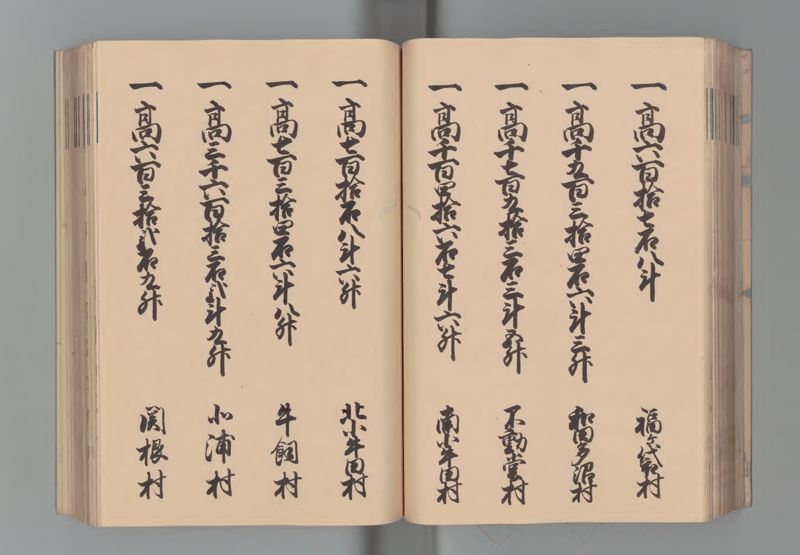 一高六百拾七石八斗 福ヶ袋村
一高千五百三拾四石六斗三升 和田多沼村
一高千七百九拾三石三斗五升 不動堂村
一高千百四拾六石七斗六升 南小牛田村
一高七百拾石八斗六升 北小牛田村
一高七百三拾四石六斗八升 牛飼村
一高三千六百拾三石弐斗九升 北浦村
一高六百三拾弐石九升 関根村